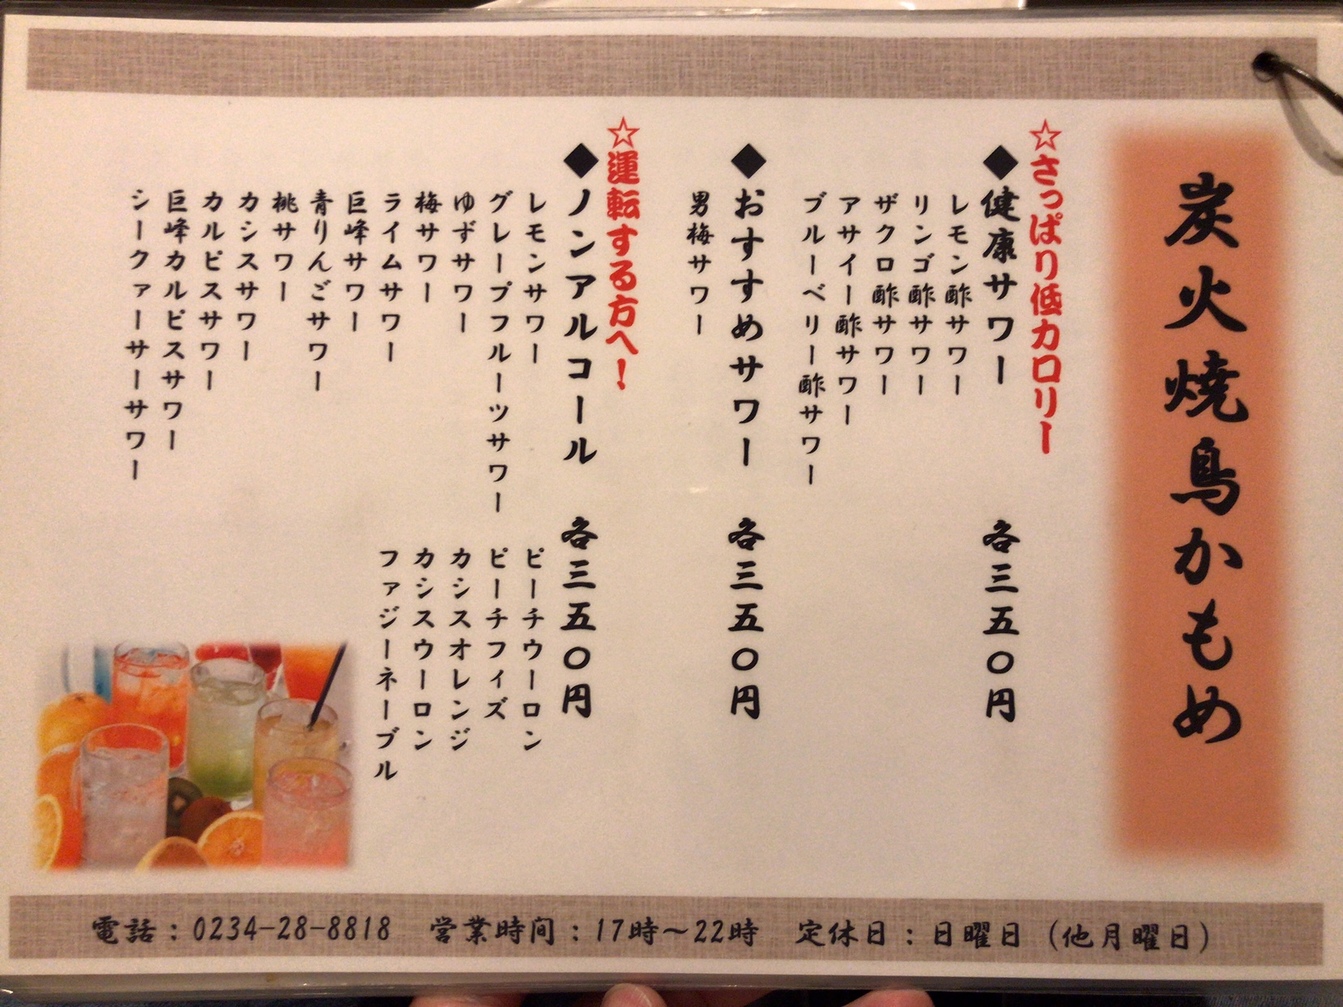 炭火焼鳥かもめ
☆さっぱり低カロリー
◆健康サワー 各三五〇円
レモン酢サワー
リンゴ酢サワー
ザクロ酢サワー
アサイー酢サワー
ブルーベリー酢サワー
◆おすすめサワー 各三五〇円
男梅サワー
☆運転する方へ!
◆ノンアルコール 各三五〇円
レモンサワー
グレープフルーツサワー
ゆずサワー
梅サワー
ライムサワー
巨峰サワー
青りんごサワー
桃サワー
カシスサワー
カルピスサワー
巨峰カルピスサワー
シークァーサーサワー
ピーチウーロン
ピーチフィズ
カシスオレンジ
カシスウーロン
ファジーネーブル
電話:0234-28-8818 営業時間:17時~22時 定休日:日曜日(他月曜日)